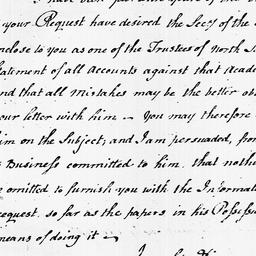 your Request have desired the Secy of the
nclose to you as one of the Trustees of North
tatement of all accounts against that Acade
nd that all Mistakes may be the better ob
our letter with him — You may therefore
im on the Subject, and I am persuaded, fro
Business committed to him, that noth
omitted to furnish you with the Informat
equest, so far as the papers in his Possess
means of doing it —